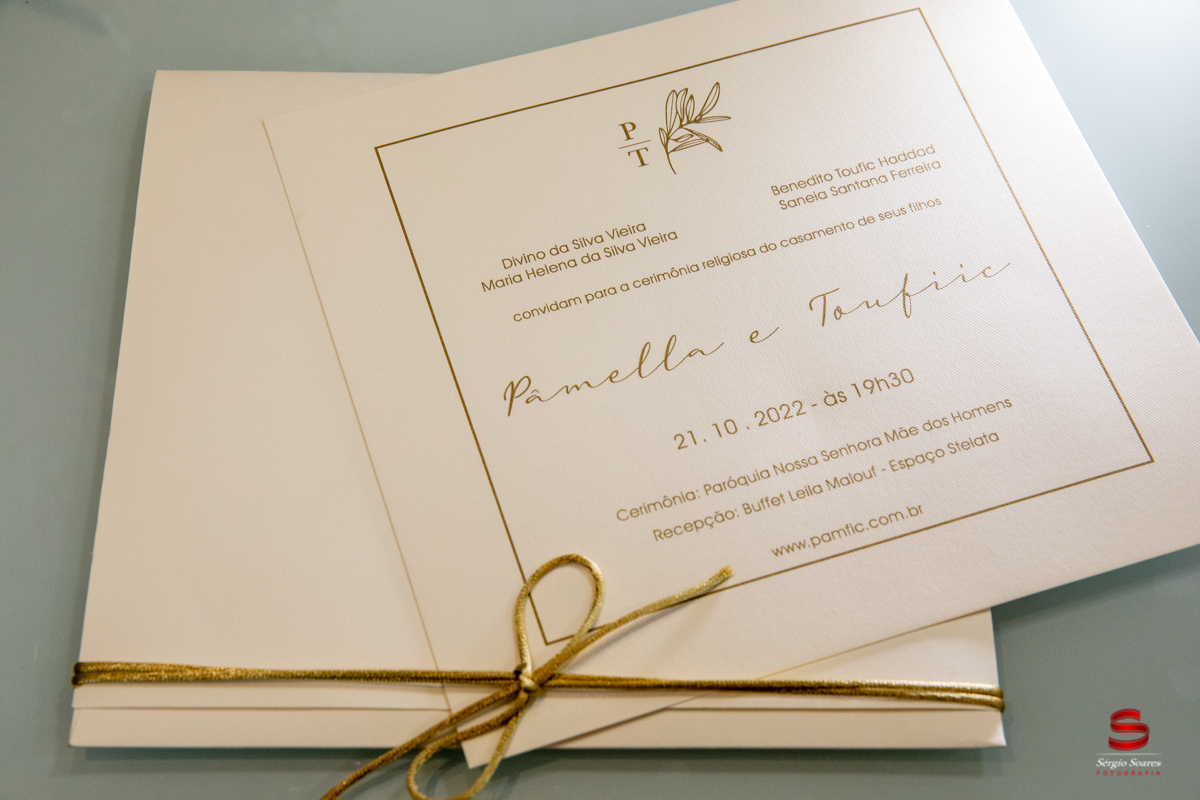 P
T
Benedito Toufic Haddad
Saneia Santana Ferreira
Divino da Silva Vieira
Maria Helena da Silva Vieira
convidam para a cerimônia religiosa do casamento de seus filhos
Pâmella e Toufiic
21 . 10 . 2022 - às 19h30
Cerimônia: Paróquia Nossa Senhora Mãe dos Homens
Recepção: Buffet Leila Malouf - Espaço Stelata
www.pamfic.com.br
S
Sérgio Soares
FOTOGRAFIA